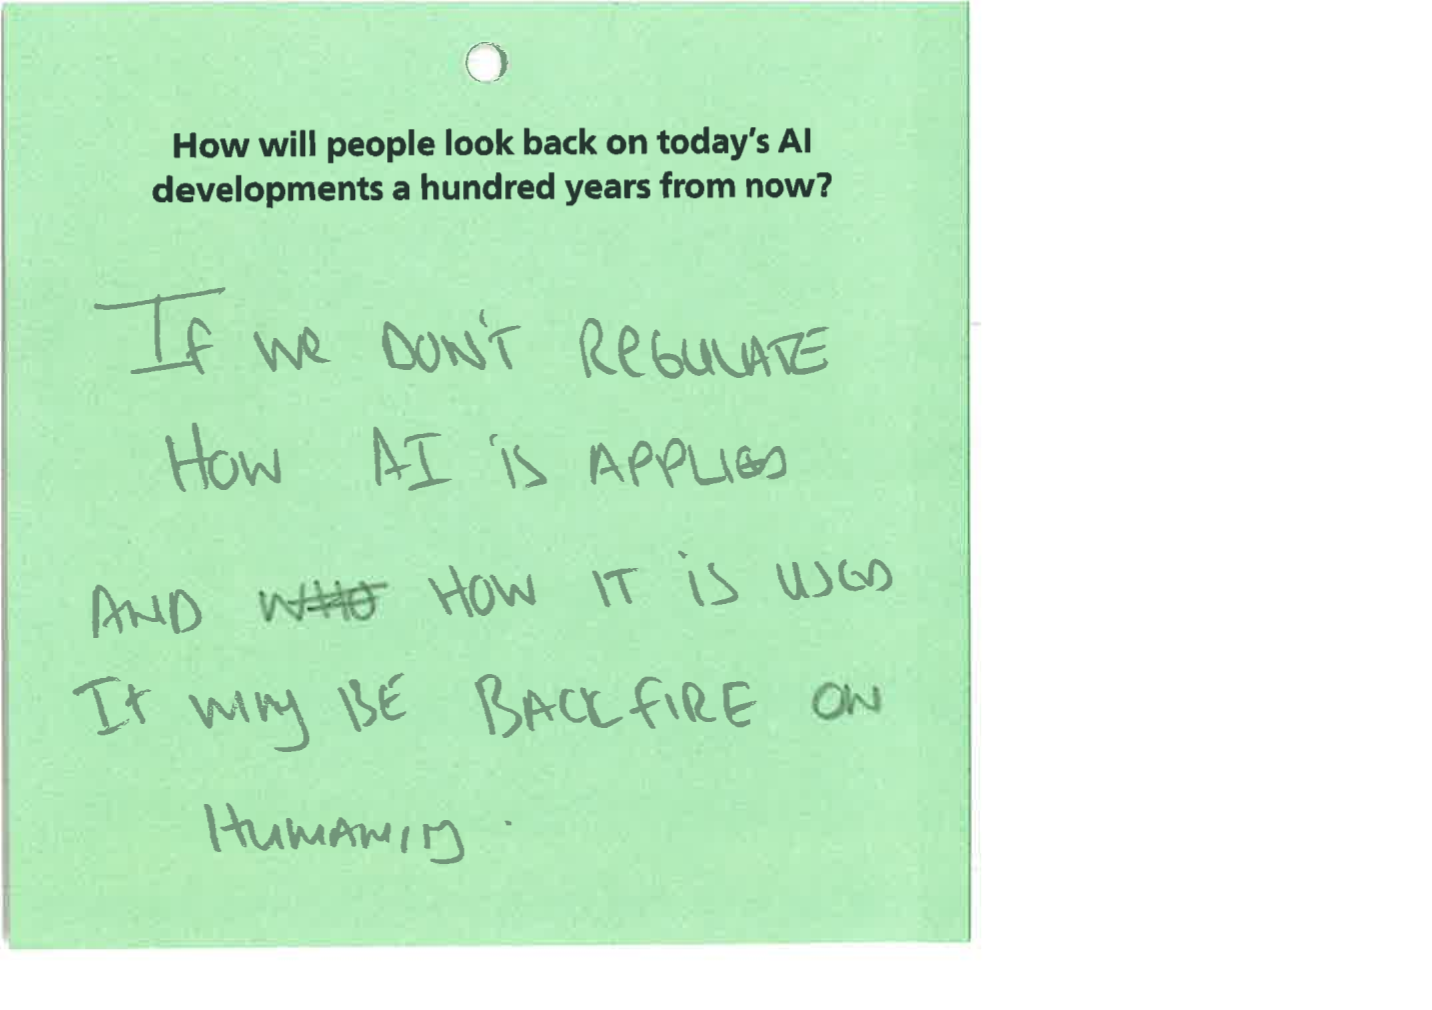 How will people look back on today's AI
developments a hundred years from now?
If we DON'T REGULATE
HOW AI is APPLIED
AND WHO HOW IT is USED
It may BE BACKFIRE ON
HUMANITY.